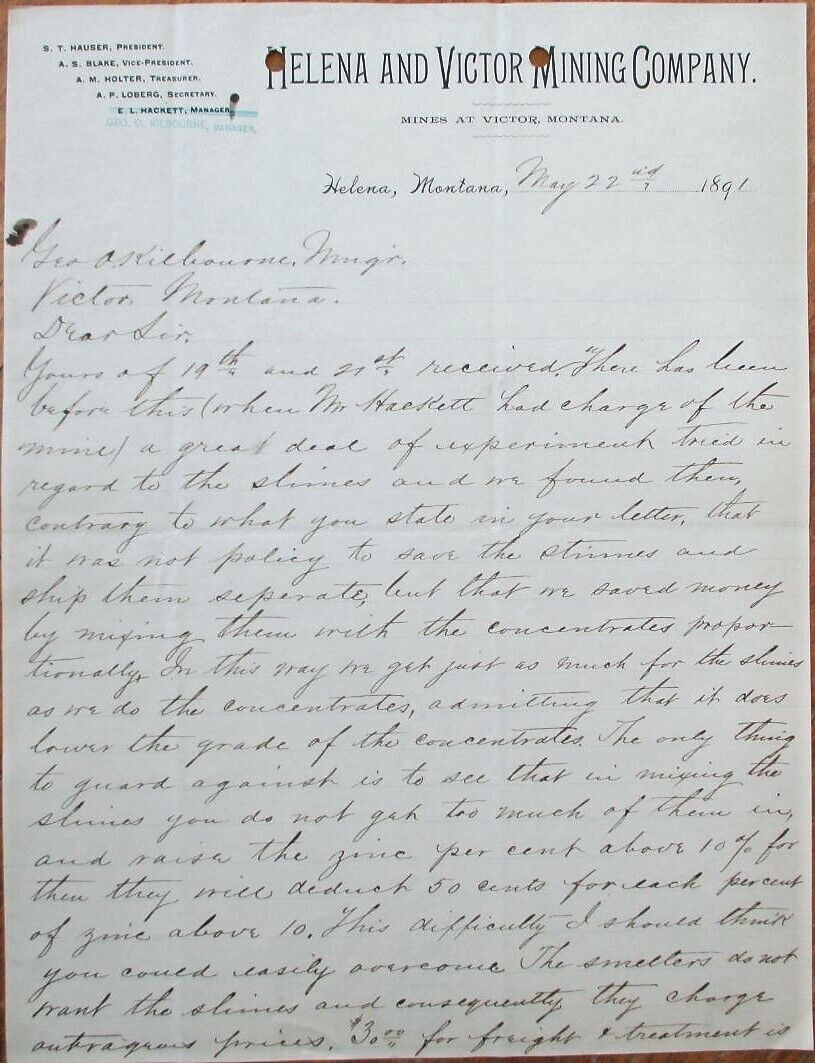 S. T. HAUSER, PRESIDENT.
A. S. BLAKE, VICE-PRESIDENT.
A. M. HOLTER, TREASURER.
A. P. LOBERG, SECRETARY.
E. L. HACKETT, MANAGER,
GEO. O. KILBOURNE, MANAGER,
HELENA AND VICTOR MINING COMPANY.
MINES AT VICTOR, MONTANA.
Helena, Montana, May 22nd 1891
Geo O Kilbourne, Mngr.
Victor, Montana.
Dear Sir,
Yours of 19th and 21st received. There has been
before this (when Mr Hackett had charge of the
mine) a great deal of experiment tried in
regard to the slimes and we found then,
contrary to what you state in your letter, that
it was not policy to save the slimes and
ship them seperate, but that we saved money
by mixing them with the concentrates propor-
tionally. In this way we get just as much for the slimes
as we do the concentrates, admitting that it does
lower the grade of the concentrates. The only thing
to guard against is to see that in mixing the
slimes you do not get too much of them in,
and raise the zinc per cent above 10% for
then they will deduct 50 cents for each per cent
of zinc above 10. This difficulty I should think
you could easily overcome. The smelters do not
want the slimes and consequently they charge
outrageous prices. $30 00 for freight & treatment is